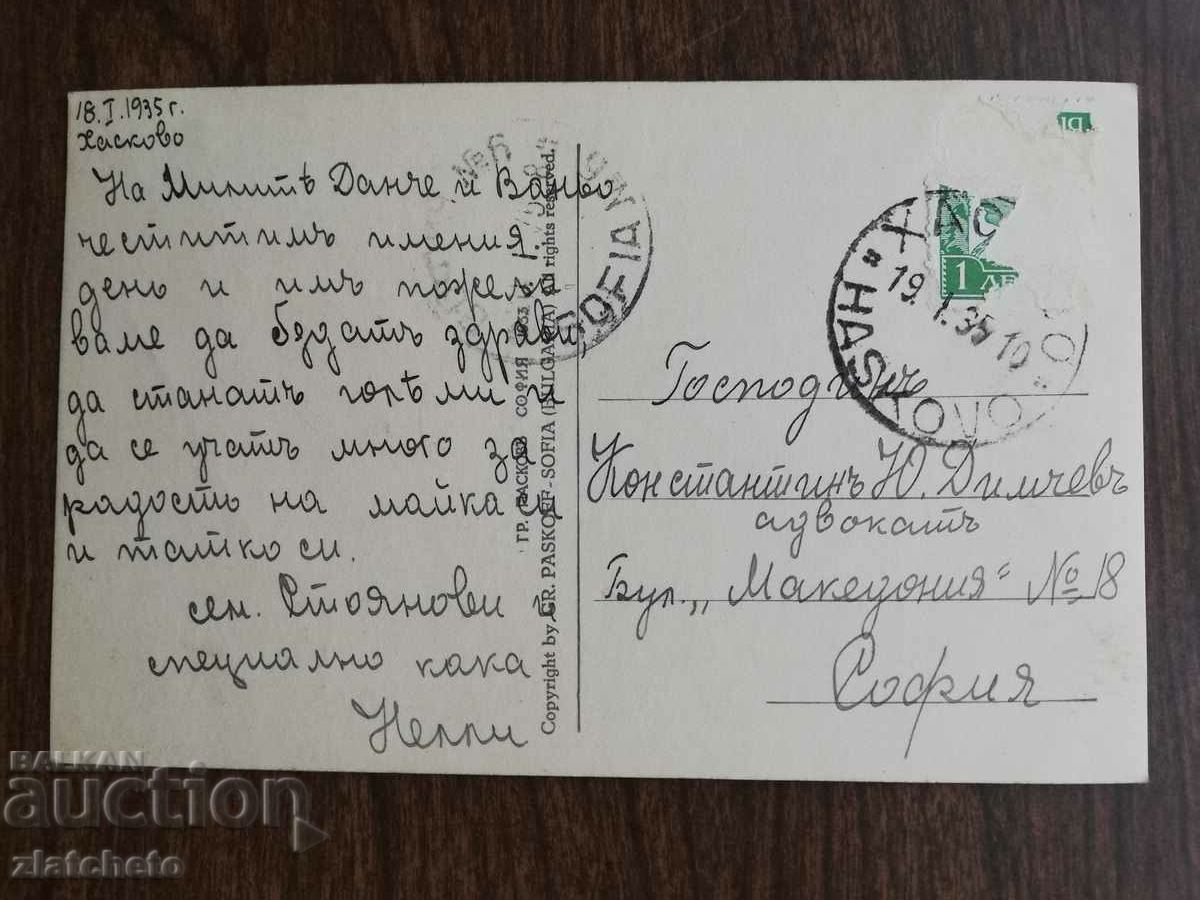 18.I.1935 г.
Хасково
На Милитѣ Данче и Ваньо
честитимъ имения
день и имъ пожела
ваме да бѫдатъ здрави,
да станатъ голѣми и
да се учатъ много за
радость на майка си
и татко си.
сем. Стоянови и
специално кака
Нелли
ГР. ПАСКОВЪ СОФИЯ 1933
Copyright by GR. PASKOFF - SOFIA (BULGARIA) All rights reserved.
SOFIA
1 ЛЕ
HASKOVO
19.I.35 10
Господинъ
Константинъ Ю. Димчевъ
адвокатъ
Бул. „Македония“ № 18
София
BALKAN
auction
zlatcheto